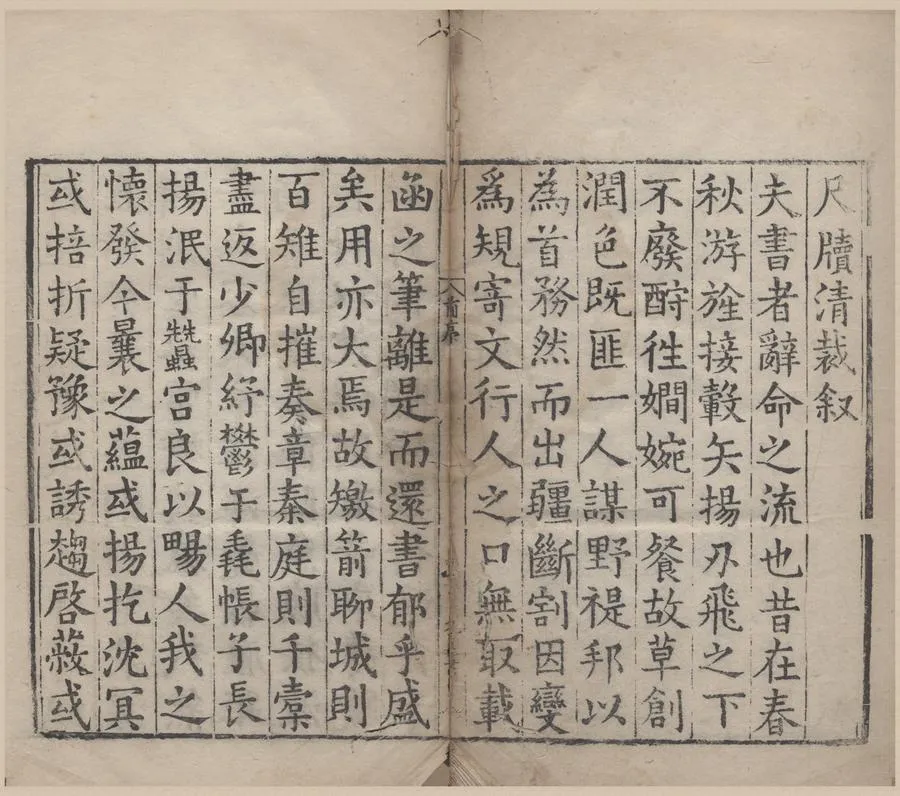 尺牘清裁叙
夫書者辭命之流也昔在春
秋游旌接轂矢揚刃飛之下
不廢酧徃嫺婉可餐故草創
潤色既匪一人謀野禔邦以
為首務然而出疆斷割因變
爲規寄文行人之口無取載
首序
函之筆離是而還書郁乎盛
矣用亦大焉故繳箭聊城則
百雉自摧奏章秦庭則千橐
盡返少卿紓鬱于毳帳子長
揚泯于蠶宮良以暢人我之
懷發今曩之蘊或揚扢沈冥
或掊折疑豫或誘趨啓蔽或